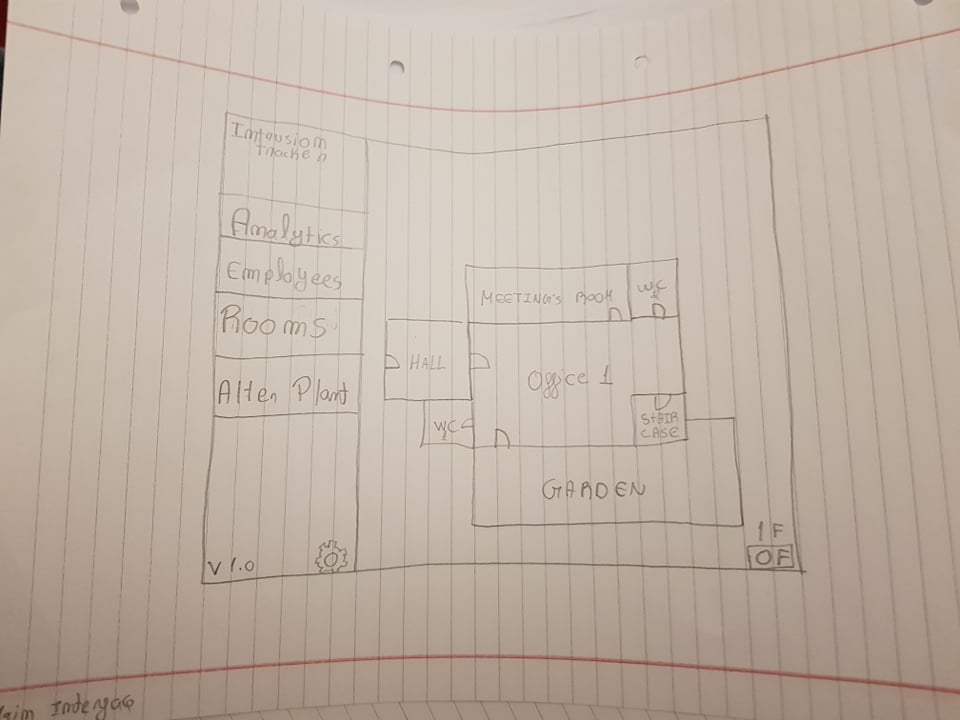 Intrusion
tracker
Analytics
Employees
Rooms
Alter Plant
V 1.0
MEETING'S ROOM
WC
2
HALL
Office 1
WC
1
STAIR
CASE
GARDEN
1F
0F